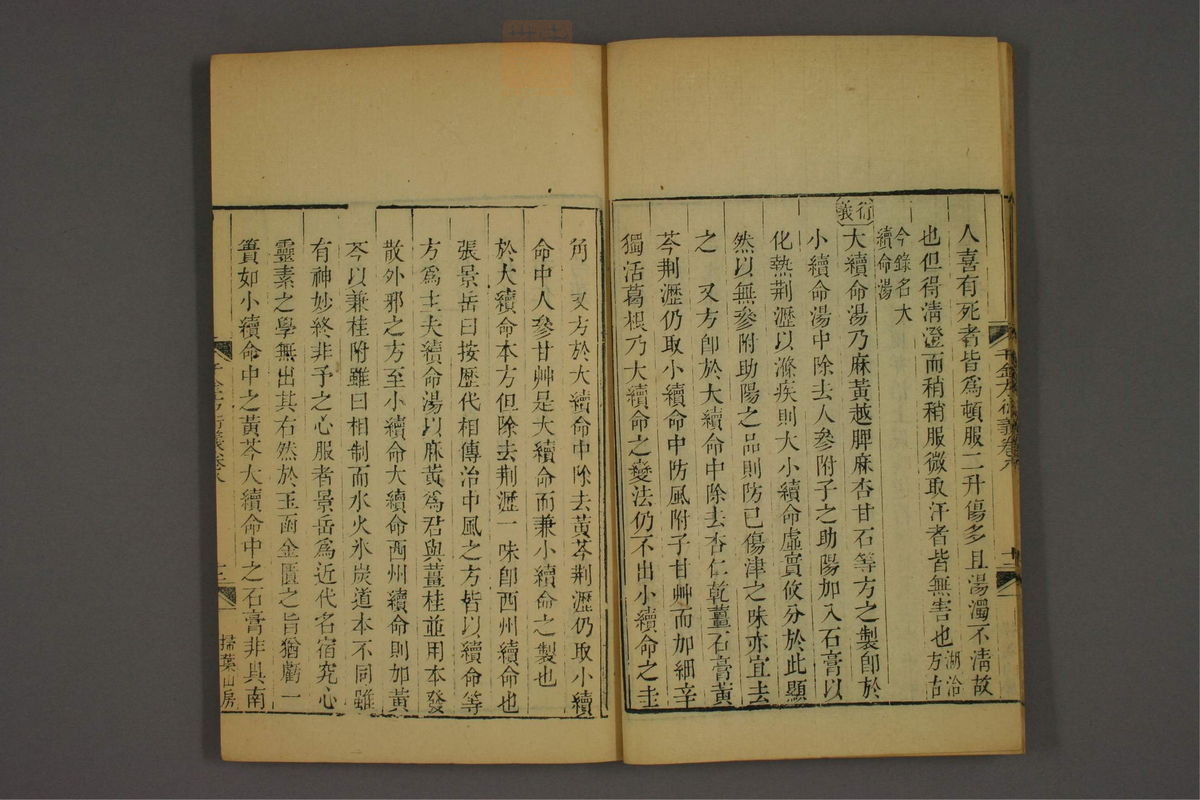 人喜有死者皆爲頓服二升傷多且湯濁不清故
也但得清澄而稍稍服微取汗者皆無害也胡洽方古
今錄名大
續命湯
衍義
大續命湯乃麻黃越脾麻杏甘石等方之製卽於
小續命湯中除去人參附子之助陽加入石膏以
化熱荆瀝以滌痰則大小續命虛實攸分於此顯
然以無參附助陽之品則防已傷津之味亦宜去
之 又方卽於大續命中除去杏仁乾薑石膏黃
芩荆瀝仍取小續命中防風附子甘艸而加細辛
獨活葛根乃大續命之變法仍不出小續命之圭
角 又方於大續命中除去黃芩荆瀝仍取小續
命中人參甘艸是大續命而兼小續命之製也
於大續命本方但除去荆瀝一味卽西州續命也
張景岳曰按歷代相傳治中風之方皆以續命等
方爲主夫續命湯以麻黃爲君與薑桂並用本發
散外邪之方至小續命大續命西州續命則加黃
芩以兼桂附雖曰相制而水火氷炭道本不同雖
有神妙終非予之心服者景岳爲近代名宿究心
靈素之學無出其右然於玉函金匱之旨猶虧一
簣如小續命中之黃芩大續命中之石膏非具南
千金方衍義卷八
掃葉山房